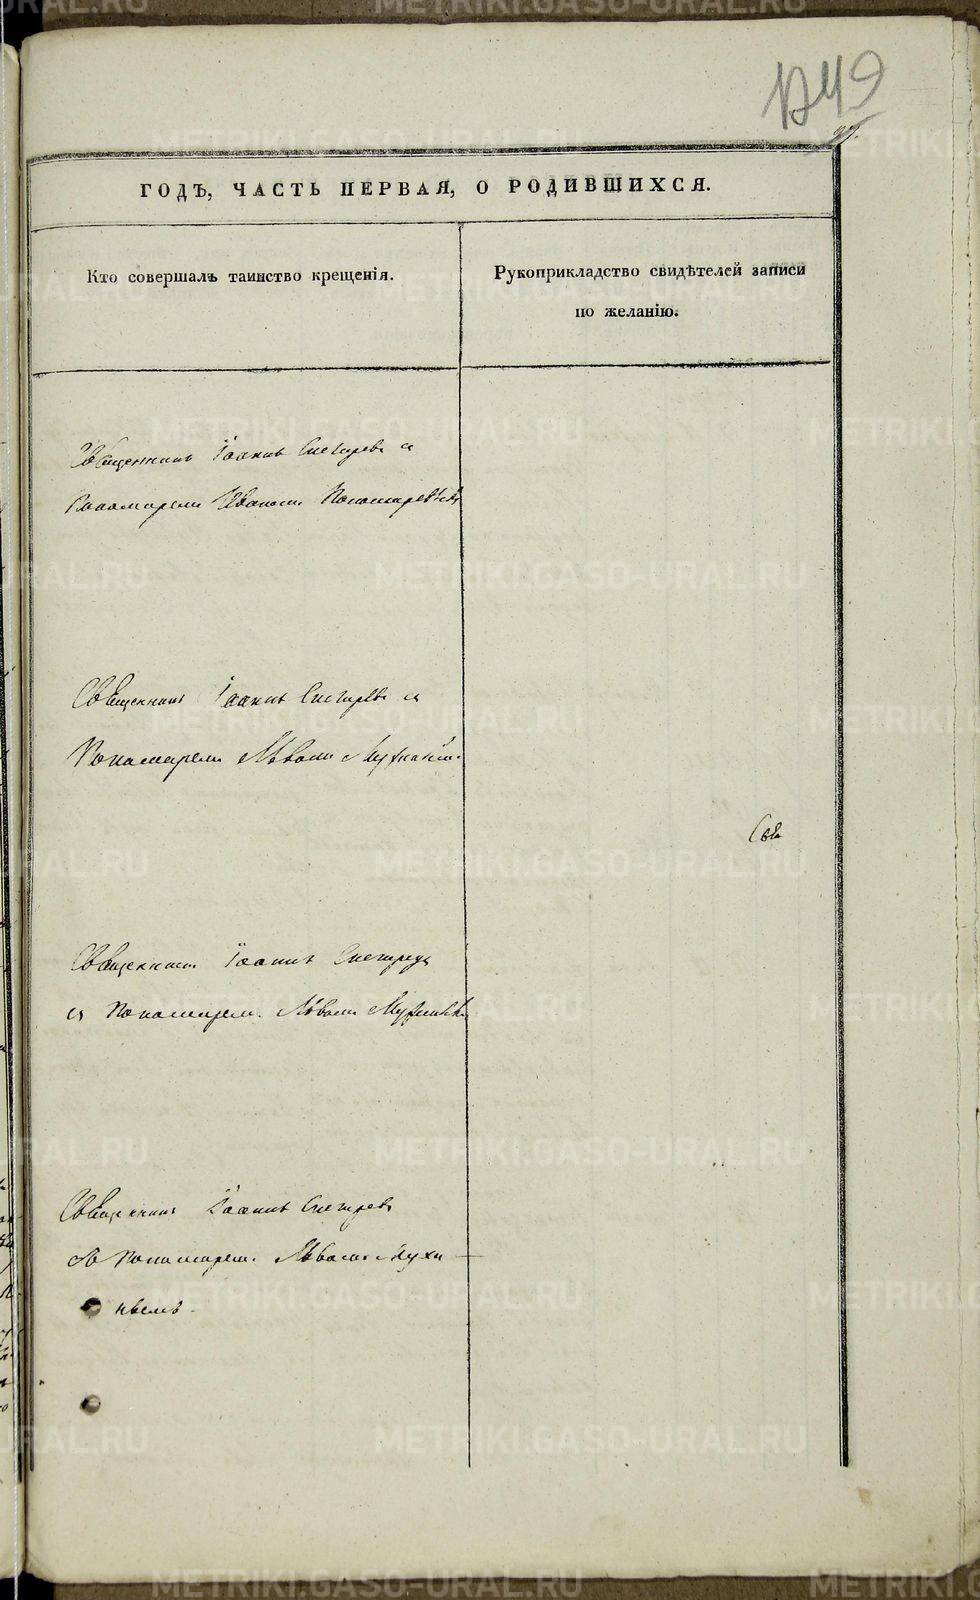 149
ГОДЪ, ЧАСТЬ ПЕРВАЯ, О РОДИВШИХСЯ.
Кто совершалъ таинство крещенія.
Рукоприкладство свидѣтелей записи
по желанію.
Священникъ Іоаннъ Снегиревъ и
Пономаремъ Иваномъ Пономаревымъ
Священникъ Іоаннъ Снегиревъ и
Пономаремъ Львомъ
Свя
Священникъ Іоаннъ Снегиревъ
и Пономаремъ Львомъ
Священникъ Іоаннъ Снегиревъ
съ Пономаремъ Львомъ Мухи
нымъ.
METRIKI.GASO-URAL.RU